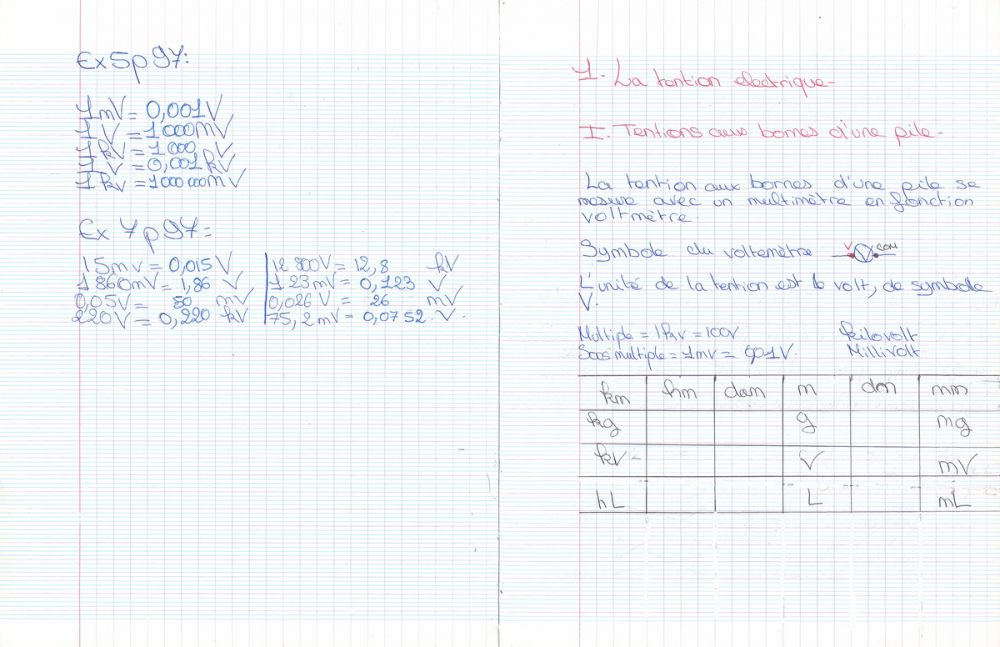 Ex 5 p 97:
1 mV = 0,001 V
1 V = 1000 mV
1 kV = 1 000 V
1 V = 0,001 kV
1 kV = 1 000 000 mV
Ex 7 p 97 =
15 mv = 0,015 V
1 860 mV = 1,86 V
0,05 V = 50 mV
220 V = 0,220 kV
12 800 V = 12,8 kV
123 mV = 0,123 V
0,026 V = 26 mV
75,2 mV = 0,0752 V.
1- La tention electrique-
I- Tentions aux bornes d'une pile-
La tention aux bornes d'une pile se
mesure avec un multimètre en fonction
voltmètre.
Symbole du voltemètre V V COM
L'unité de la tention est le volt, de symbole
V.
Multiple = 1 kv = 100V kilovolt
Sous multiple = 1 mv = V. Millivolt
km hm dam m dm mm
kg g mg
kV V mV
hL L mL